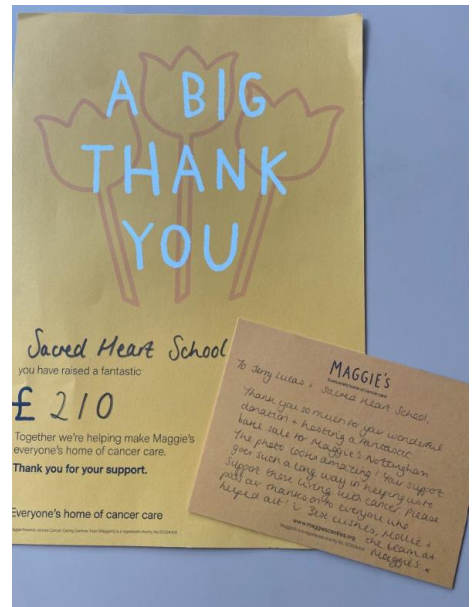 A BIG
THANK
YOU
Sacred Heart School
you have raised a fantastic
£ 210
Together we're helping make Maggie's
everyone's home of cancer care.
Thank you for your support.
Everyone's home of cancer care
MAGGIE'S
Everyone's home of cancer care
To Jerry Lucas + Sacred Heart School,
Thank you so much for your wonderful
donation + hosting a fantastic
bake sale for Maggie's Nottingham
The photo looks amazing! Your support
goes such a long way in helping us to
support those living with cancer. Please
pass our thanks on to everyone who
helped out! Best wishes, Mollie +
the team at
Maggie's x
www.maggiescentres.org